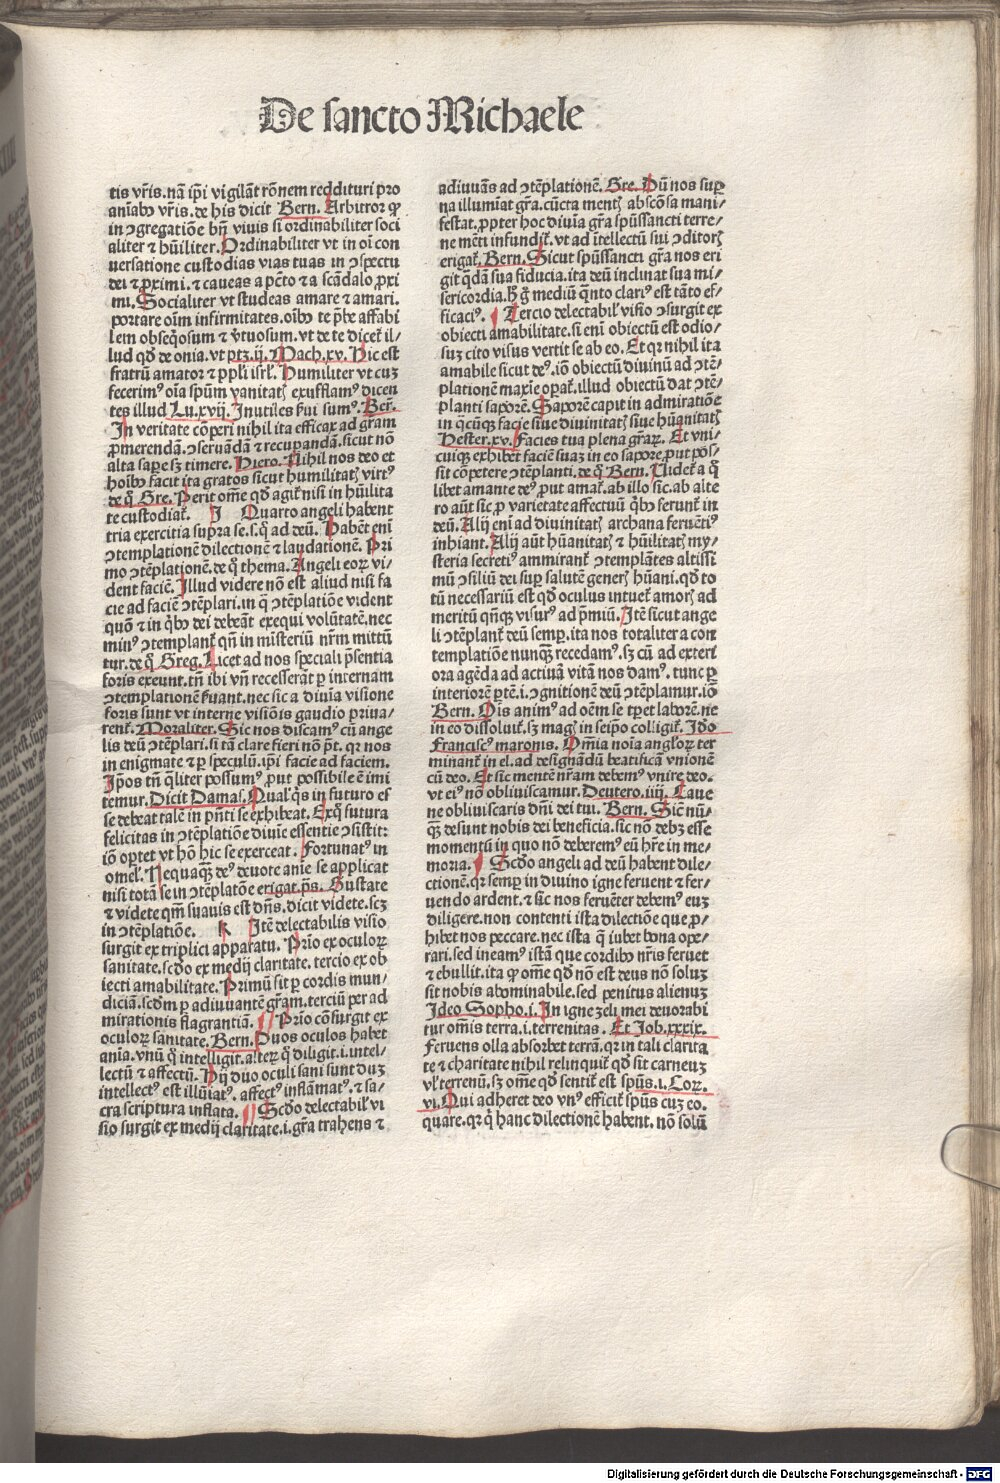 De sancto Michaele
tis vr̃is. nã ip̃i vigilãt rõnem reddituri pro
aniabꝰ vr̃is. de his dicit Bern. Arbitror ꝙ
in ꝯgregatiõe bñ viuis si ordinabiliter soci
aliter ⁊ hũiliter. Ordinabiliter vt in oĩ con
uersatione custodias vias tuas in ꝯspectu
dei ⁊ ꝓximi. ⁊ caueas a pct̃o ⁊ a scãdalo ꝓxi
mi. Socialiter vt studeas amare ⁊ amari.
portare oĩm infirmitates. oĩbꝰ te p̃be affabi
lem obseq̃osum ⁊ v̓tuosum. vt de te dicet̃ il⸗
lud qd̃ de onia. vt ptꝫ .ij. Mach. xv. Hic est
fratrũ amator ⁊ ppl̓i isrl̓. Humiliter vt cuꝫ
fecerimꝰ oĩa spũm vanitatꝭ exufflamꝰ dicen
tes illud Lu. xvij. Inutiles ẜui sumꝰ. Ber̃.
In veritate cõperi nihil ita efficax ad gr̃am
ꝓmerendã. ꝯseruãdã ⁊ recuꝑandã. sicut nõ
alta saꝑe sꝫ timere. Hiero. Nihil nos deo et
hoĩbꝰ facit ita gratos sicut humilitatꝭ virtꝰ
de q̃ Gre. Perit om̃e qd̃ agit̃ nisi in hũilita
te custodiat̃. I Quarto angeli habent
tria exercitia supra se. s. q̃ ad deũ. Habẽt eni̓
ꝯtemplationẽ dilectionẽ ⁊ laudationẽ. Pri
mo ꝯtẽplationẽ. de q̃ thema. Angeli eoꝝ vi⸗
dent faciẽ. Illud videre nõ est aliud nisi fa
cie ad faciẽ ꝯtẽplari. in q̃ ꝯtẽplatiõe vident
quõ ⁊ in q̃bꝰ dei debeãt exequi volũtatẽ. nec
minꝰ ꝯtemplant̃ qñ in mĩsteriũ nr̃m mittũ
tur. de q̃ Greg. Licet ad nos speciali p̃sentia
foris exeunt. tñ ibi vñ recesserãt ꝑ internam
ꝯtemplationẽ ẜuant. nec sic a diuia visione
foris sunt vt interne visiõis gaudio priua⸗
rent̃. Moraliter. Sic nos discamꝰ cũ ange
lis deũ ꝯtẽplari. si tã clare fieri nõ pt̃. qꝛ nos
in enigmate ⁊ ꝑ speculũ. ip̃i facie ad faciem.
Ip̃os tñ q̃liter possumꝰ ꝓut possibile ẽ imi
temur. Dicit Damas. Qual̓ q̃s in futuro es
se debeat tale in pñti se exhibeat. Ex q̃ futura
felicitas in ꝯtẽplatiõe diuie essentie ꝯsistit:
iõ oꝑtet vt hõ hic se exerceat. Fortunatꝰ in
omel̓. Nequaq̃ꝫ deꝰ deuote anie se applicat
nisi totã se in ꝯtẽplatõe erigat. ps̃. Gustate
⁊ videte qm̃ suauis est dñs. dicit videte. scꝫ
in ꝯtẽplatiõe. K Itẽ delectabilis visio
surgit ex triplici apparatu. Pri̓o ex oculoꝝ
sanitate. scd̃o ex medij claritate. tercio ex ob
iecti amabilitate. Primũ sit ꝑ cordis mun⸗
diciã. scdm̃ ꝑ adiuuantẽ gr̃am. terciũ per ad
mirationis flagrantiã. Pri̓o cõsurgit ex
oculoꝝ sanitate. Bern. Duos oculos habet
ani̓a. vnũ q̃ intelligit. alteꝝ q̃ diligit. i. intel⸗
lectũ ⁊ affectũ. Hij duo oculi sani sunt dum
intellectꝰ est illũiatꝰ. affectꝰ inflãmatꝰ. ⁊ sa⸗
cra scriptura inflata. Scd̃o delectabil̓ vi
sio surgit ex medij claritate. i. gr̃a trahens ⁊
adiuuãs ad ꝯtẽplationẽ. Gre. Dũ nos suꝑ
na illumiat gr̃a. cũcta mentꝭ abscõsa mani⸗
festat. ꝓpter hoc diuia gr̃a spũssancti terre⸗
ne mẽti infundit̃. vt ad ĩtellectũ sui ꝯditorꝭ
erigat̃. Bern. Sicut spũssancti gr̃a nos eri
git qd̃ã sua fiducia. ita deũ inclinat sua mi⸗
sericordia. h̃ g̃ mediũ q̃nto clariꝰ est tãto ef⸗
ficaciꝰ. Tercio delectabil̓ visio ꝯsurgit ex
obiecti amabilitate. si eni̓ obiectũ est odio⸗
suꝫ cito visus vertit se ab eo. Et qꝛ nihil ita
amabile sicut deꝰ. iõ obiectũ diuinũ ad ꝯtẽ⸗
plationẽ maxie oꝑat̃. illud obiectũ dat ꝯtẽ⸗
planti saporẽ. Saporẽ capit in admiratiõe
in q̃cũqꝫ facie siue diuinitatꝭ siue hũanitatꝭ
Hester. xv. Facies tua plena gr̃aꝝ. Et vni⸗
cuiqꝫ exhibet faciẽ suaꝫ in eo sapore ꝓut pos⸗
sit cõpetere ꝯtẽplanti. de q̃ Bern. Uidet̃ a q̃
libet amante deꝰ ꝓut amat̃. ab illo sic. ab alte
ro aũt sic. ꝓ varietate affectuũ q̃bꝰ ferunt̃ in
deũ. Alij eni̓ ad diuinitatꝭ archana feruẽtiꝰ
inhiant. Alij aũt hũanitatꝭ ⁊ hũilitatꝭ my⸗
steria secretiꝰ ammirant̃ ꝯtemplãtes altissi
mũ ꝯsiliũ dei suꝑ salutẽ generꝭ hũani. qd̃ to
tũ necessariũ est qd̃ oculus intuet̃ amorꝭ ad
meritũ qñqꝫ visurꝰ ad p̃miũ. Itẽ sicut ange
li ꝯtẽplant̃ deũ semꝑ. ita nos totaliter a con
templatiõe nunq̃ꝫ recedamꝰ. sꝫ cũ ad exteri
ora agẽda ad actiuã vitã nos damꝰ. tunc ꝑ
interiorẽ ꝑtẽ. i. ꝯgnitionẽ deũ ꝯtẽplamur. iõ
Bern. Oĩs animꝰ ad oẽm se tꝑet laborẽ. ne
in eo dissoluit̃. sꝫ magꝭ in seip̃o colligit̃. Id̃o
Franciscꝰ maronis. Om̃ia noĩa angl̓oꝝ ter
minant̃ in el. ad designãdũ beatificã vnionẽ
cũ deo. Et sic mentẽ nr̃am debemꝰ vnire deo.
vt eiꝰ nõ obliuiscamur. Deutero. iiij. Caue
ne obliuiscaris dñi dei tui. Bern. Sic nũ⸗
q̃ꝫ desunt nobis dei beneficia. sic nõ debꝫ esse
momentũ in quo nõ deberemꝰ eũ hr̃e in me⸗
moria. Scd̃o angeli ad deũ habent dile⸗
ctionẽ. qꝛ semꝑ in diuino igne feruent ⁊ fer⸗
uendo ardent. ⁊ sic nos feruẽter debemꝰ euꝫ
diligere. non contenti ista dilectiõe que ꝓ⸗
hibet nos peccare. nec ista q̃ iubet bona ope⸗
rari. sed ineamꝰ istã que cordibꝰ nr̃is feruet
⁊ ebullit. ita ꝙ om̃e qd̃ nõ est deus nõ soluꝫ
sit nobis abominabile. sed penitus alienuꝫ
Ideo Sopho. i. In igne zeli mei deuorabi
tur om̃is terra. i. terrenitas. Et Iob. xxxix.
Feruens olla absorbet terrã. qꝛ in tali clarita
te ⁊ charitate nihil relinquit̃ qd̃ sit carneuꝫ
vl̓ terrenũ. sꝫ om̃e qd̃ sentit̃ est spũs. i. Coꝝ.
vi. Qui adheret deo vnꝰ efficit̃ spũs cuꝫ eo.
quare. qꝛ q̃ hanc dilectionẽ habent. nõ solũ
Digitalisierung gefördert durch die Deutsche Forschungsgemeinschaft - DFG